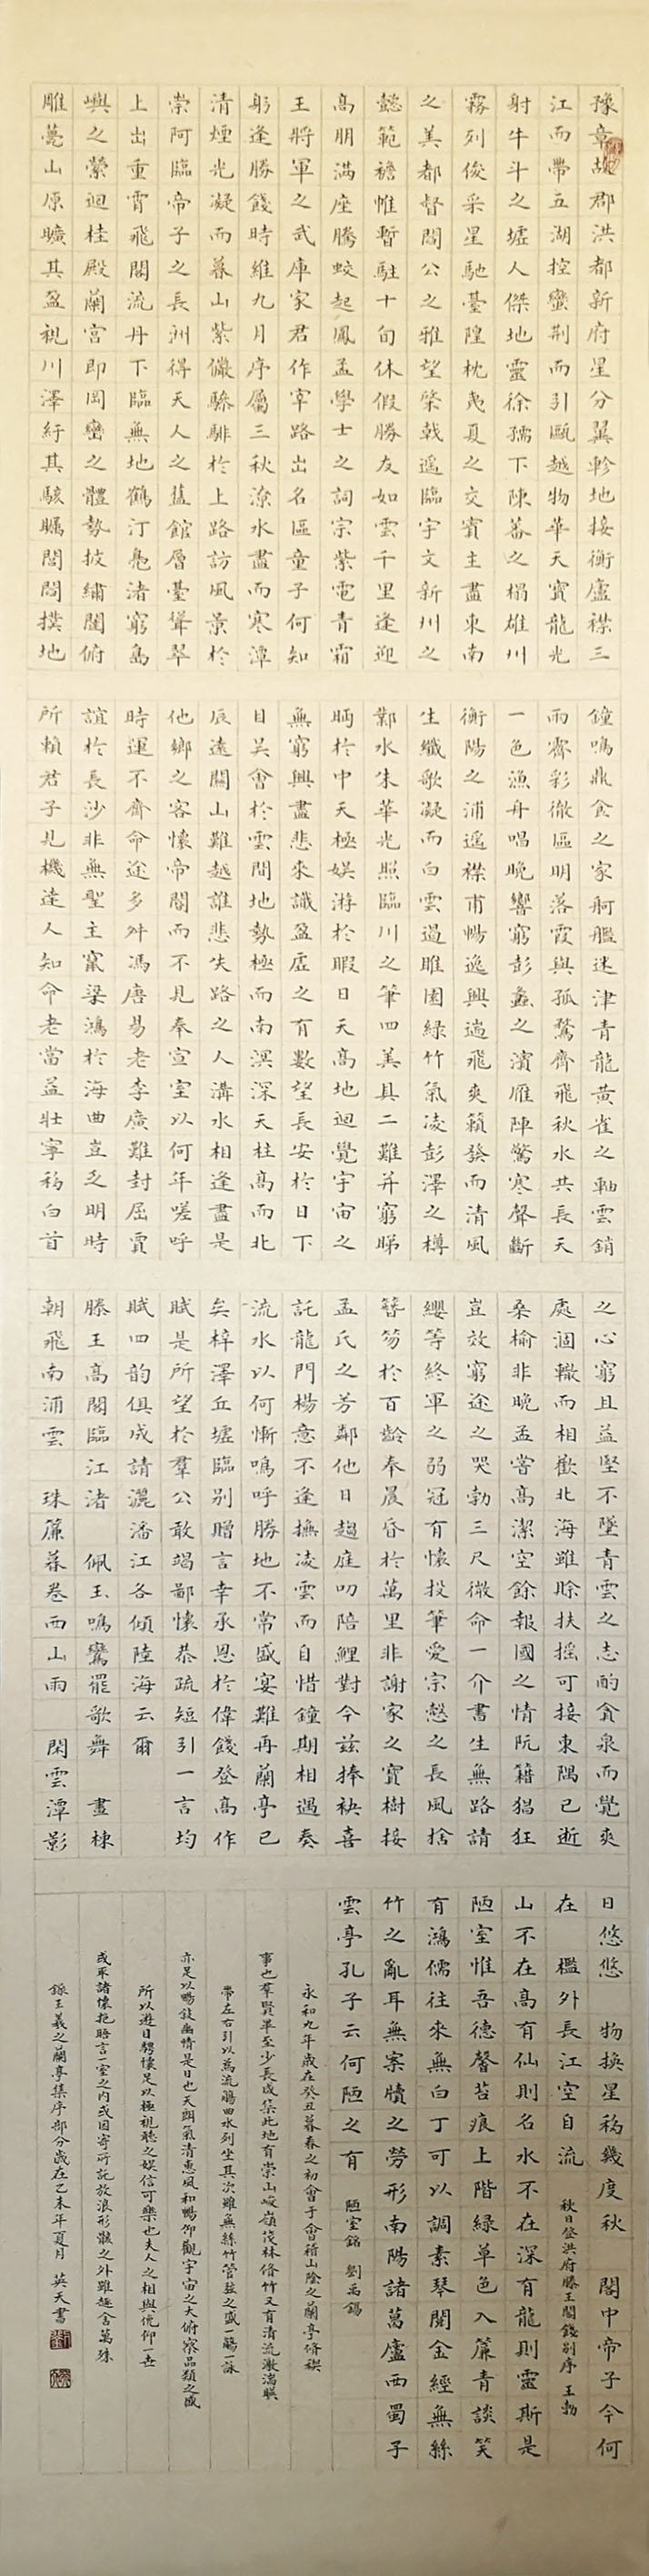 豫章故郡洪都新府星分翼軫地接衡廬襟三
江而帶五湖控蠻荆而引甌越物華天寶龍光
射牛斗之墟人傑地靈徐孺下陳蕃之榻雄川
霧列俊采星馳臺隍枕夷夏之交賓主盡東南
之美都督閻公之雅望棨戟遙臨宇文新川之
懿範襜帷暫駐十旬休假勝友如雲千里逢迎
高朋滿座騰蛟起鳳孟學士之詞宗紫電青霜
王將軍之武庫家君作宰路出名區童子何知
躬逢勝餞時維九月序屬三秋潦水盡而寒潭
清煙光凝而暮山紫儼驂騑於上路訪風景於
崇阿臨帝子之長洲得天人之舊館層臺聳翠
上出重霄飛閣流丹下臨無地鶴汀鳧渚窮島
嶼之縈迴桂殿蘭宮即岡巒之體勢披繡闥俯
雕甍山原曠其盈視川澤紆其駭矚閭閻撲地
鐘鳴鼎食之家舸艦迷津青龍黃雀之軸雲銷
雨霽彩徹區明落霞與孤鶩齊飛秋水共長天
一色漁舟唱晚響窮彭蠡之濱雁陣驚寒聲斷
衡陽之浦遙襟甫暢逸興遄飛爽籟發而清風
生纖歌凝而白雲遏睢園綠竹氣凌彭澤之樽
鄴水朱華光照臨川之筆四美具二難并窮睇
眄於中天極娛游於暇日天高地迴覺宇宙之
無窮興盡悲來識盈虛之有數望長安於日下
目吳會於雲間地勢極而南溟深天柱高而北
辰遠關山難越誰悲失路之人溝水相逢盡是
他鄉之客懷帝閽而不見奉宣室以何年嗟呼
時運不齊命途多舛馮唐易老李廣難封屈賈
誼於長沙非無聖主竄梁鴻於海曲豈乏明時
所賴君子見機達人知命老當益壯寧移白首
之心窮且益堅不墜青雲之志酌貪泉而覺爽
處涸轍而相歡北海雖賒扶搖可接東隅已逝
桑榆非晚孟嘗高潔空餘報國之情阮籍猖狂
豈效窮途之哭勃三尺微命一介書生無路請
纓等終軍之弱冠有懷投筆愛宗愨之長風捨
簪笏於百齡奉晨昏於萬里非謝家之寶樹接
孟氏之芳鄰他日趨庭叨陪鯉對今茲捧袂喜
託龍門楊意不逢撫凌雲而自惜鐘期相遇奏
流水以何慚嗚呼勝地不常盛宴難再蘭亭已
矣梓澤丘墟臨別贈言幸承恩於偉餞登高作
賦是所望於羣公敢竭鄙懷恭疏短引一言均
賦四韵俱成請灑潘江各傾陸海云爾
滕王高閣臨江渚 佩玉鳴鸞罷歌舞 畫棟
朝飛南浦雲 珠簾暮卷西山雨 閑雲潭影
日悠悠 物換星移幾度秋 閣中帝子今何
在 檻外長江空自流 秋日登洪府滕王閣餞別序 王勃
山不在高有仙則名水不在深有龍則靈斯是
陋室惟吾德馨苔痕上階綠草色入簾青談笑
有鴻儒往來無白丁可以調素琴閱金經無絲
竹之亂耳無案牘之勞形南陽諸葛廬西蜀子
雲亭孔子云何陋之有 陋室銘 劉禹錫
永和九年歲在癸丑暮春之初會于會稽山陰之蘭亭脩禊
事也羣賢畢至少長咸集此地有崇山峻嶺茂林脩竹又有清流激湍暎
帶左右引以為流觴曲水列坐其次雖無絲竹管弦之盛一觴一詠
亦足以暢敍幽情是日也天朗氣清惠風和暢仰觀宇宙之大俯察品類之盛
所以遊目騁懷足以極視聽之娛信可樂也夫人之相與俛仰一世
或取諸懷抱晤言一室之內或因寄所託放浪形骸之外雖趣舍萬殊
錄王羲之蘭亭集序部分歲在乙未年夏月 英天書